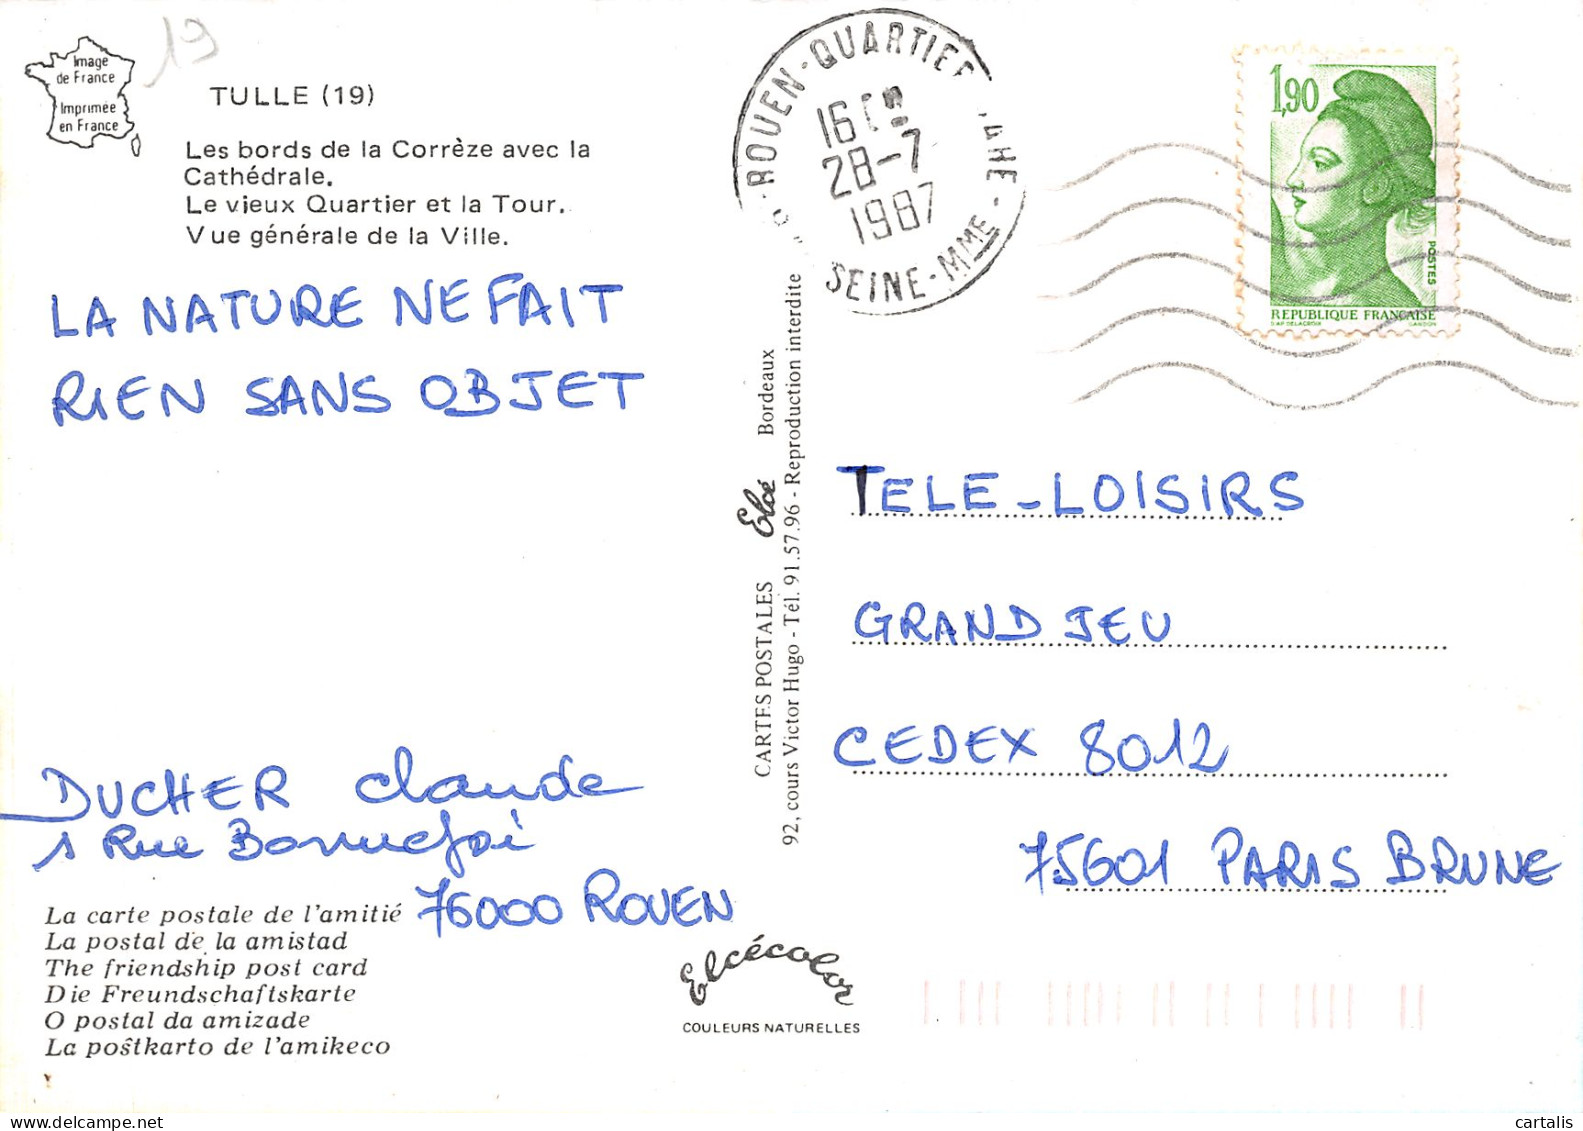 19
Image
de France
Imprimée
en France
TULLE (19)
Les bords de la Corrèze avec la
Cathédrale.
Le vieux Quartier et la Tour.
Vue générale de la Ville.
LA NATURE NE FAIT
RIEN SANS OBJET
DUCHER Claude
1 Rue Bonnefoi
76000 ROUEN
La carte postale de l'amitié
La postal de la amistad
The friendship post card
Die Freundschaftskarte
O postal da amizade
La poŝtkarto de l'amikeco
CARTES POSTALES Elcé Bordeaux
92, cours Victor Hugo - Tél. 91.57.96 - Reproduction interdite
Elcécolor
COULEURS NATURELLES
ROUEN-QUARTIER
SEINE-MME
16
28-7
1987
1,90
POSTES
REPUBLIQUE FRANÇAISE
D'AP. DELACROIX GANDON
TELE-LOISIRS
GRAND JEU
CEDEX 8012
75601 PARIS BRUNE
cartalis